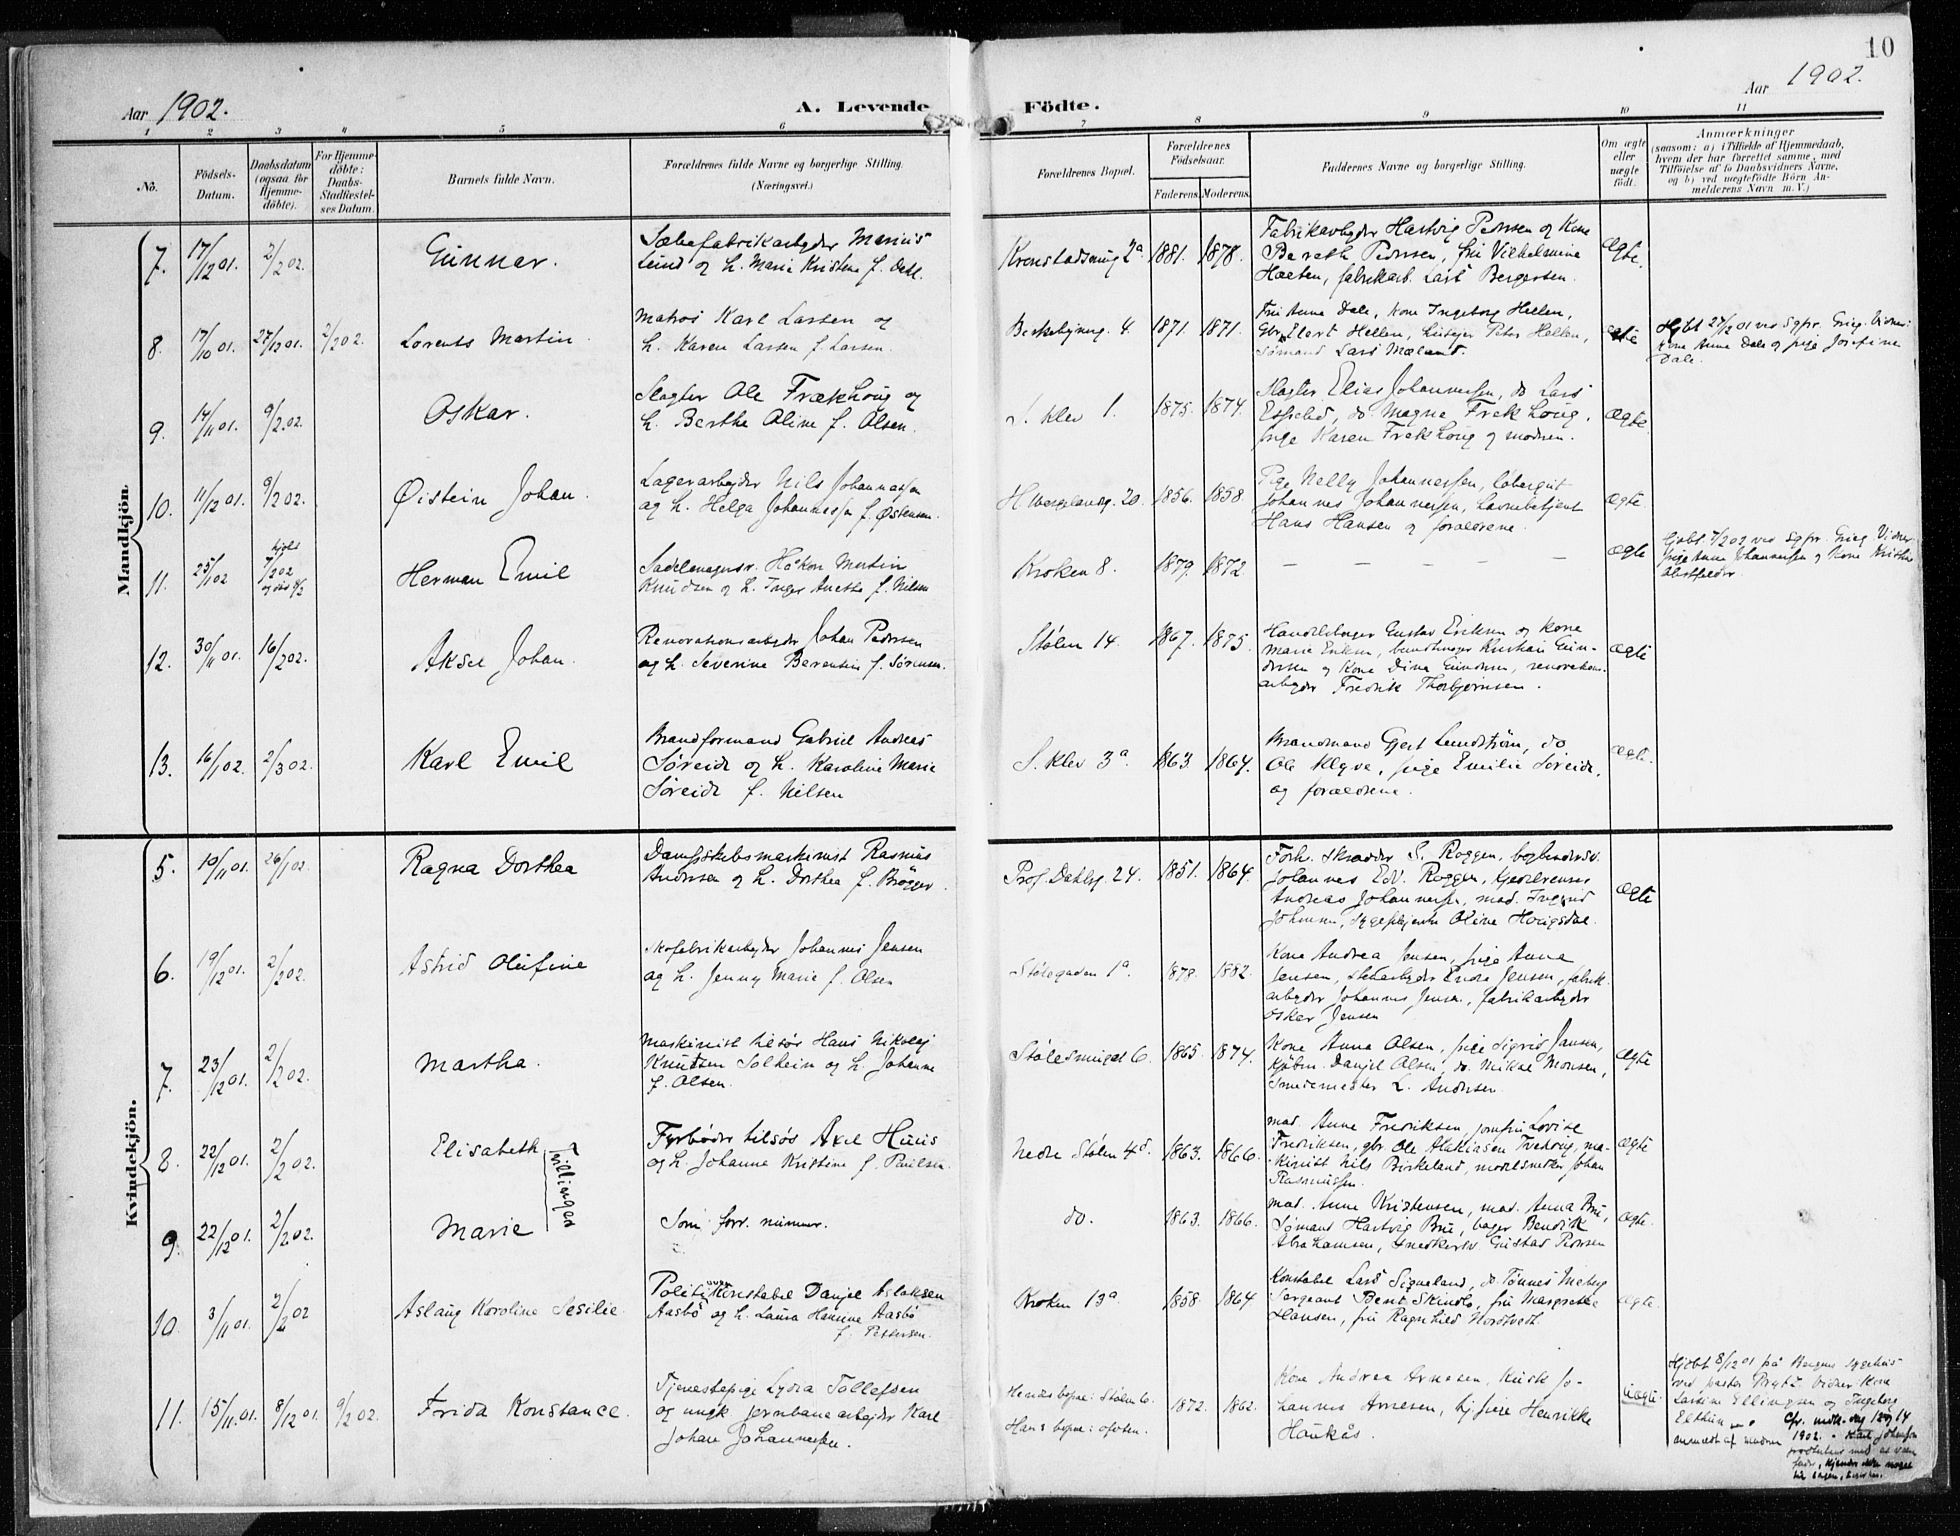 10
Aar 1902.
A. Levende
Födte.
Aar 1902.
1 2 3 4 5 6 7 8 9 10 11
No.
Födsels-Datum.
Daabsdatum (ogsaa for Hjemmedöbte).
For Hjemmedöbte: Daabs-Stadfæstelses Datum.
Barnets fulde Navn.
Forældrenes fulde Navne og borgerlige Stilling.
(Næringsvei.)
Forældrenes Bopæl.
Forældrenes Födselsaar.
Faderens. Moderens.
Faddernes Navne og borgerlige Stilling.
Om ægte eller uægte födt.
Anmærkninger
(saasom: a) i Tilfælde af Hjemmedaab,
hvem der har forrettet samme, med
Tilföielse af to Daabsvidners Navne,
og b) ved uægtefödte Börn An-
melderens Navn m. V.)
Mandkjön.
7. 17/12 01. 2/2 02. Gunnar.
Sæbefabrikarbejder Marius
Lund og h. Marie Kristine f. Dahl.
Kronstadsmug 2a 1881. 1878.
Fabrikarbejder Hartvig Pedersen og Kone
Bereth Pedersen, frü Vilhelmine
Holten, fabrikarb. Lars Bergersen.
Ægte.
8. 17/10 01. 27/12 01. 2/2 02. Lorents Martin
Matros Karl Larsen og
h. Karen Larsen f. Larsen.
4. 1871. 1871.
Frü Anna Dale, Kone Ingeborg Hellen,
Gbr. Elert Hellen, Peter Hellen,
Sømand Lars Mæland.
Ægte
Hjbt 27/12 01 ved Sgpr. Grieg. Vidner:
Kone Anna Dale og pige Josefine
Dale.
9. 14/11 01. 9/2 02. Oskar.
Slagter Ole Frækhoüg og
h. Berthe Oline f. Olsen.
S. Klev 1. 1875. 1874.
Slagter Elias Johannessen, do Lars
Espeland, do. Magne Frekhoüg,
pige Karen Frekshoüg og modren.
Ægte.
10. 11/12 01. 9/2 02. Øistein Johan.
Lagerarbejder Nils Johannessen
og h. Helga Johannessen f. Østensen.
H Wergelandsg. 20. 1856. 1858.
Pige Nelly Johannessen, løbergut
Johannes Johannessen, Havnebetjent
Hans Hansen og forældrene.
Ægte.
11. 25/1 02 7/2 02 Herman Emil
Sadelmagersv. Håkon Martin
Knüdsen og h. Inger Anette f. Nilsen
Kroken 8. 1879. 1872
— — — — —
Ægte
Hjbt. 7/2 02 ved Sgpr. Grieg. Vidner
pige Anna Johannessen og Kone Kristine
12. 30/11 01. 16/2 02. Aksel Johan.
Renovationsarbejder Johan Pedersen
og h. Severine Berentsen f. Sørensen.
Stølen 14. 1867. 1875.
Handelsbager Gustav Eriksen og Kone
Marie Eriksen, Kristian Gün-
dersen og Kone Dina Gündersen, renovations-
arbejder Fredrik Thorbjørnsen.
Ægte
13. 16/1 02. 2/3 02. Karl Emil
Brandformand Gabriel Andreas
Søreide og h. Karoline Marie
Søreide f. Nilsen
S. Klev 3a. 1863. 1864.
Brandmand Gjert Lundstrøm, do
Ole Klyve, pige Emilie Søreide,
og forældrene.
Ægte.
Kvindekjön.
5. 10/11 01. 26/1 02. Ragna Dorthea
Dampskibsmaskinist Rasmus
Andersen og h. Dorthea f. Brøgger.
Prof. Dahlsg. 24. 1851. 1864.
Forh. skræder S. Roggen, bogbindersv.
Johannes Edv. Roggen,
Andreas Johannessen, mad. Ingrid
Johnsen, Sygeplejerske Oline Hoügsdal.
Ægte
6. 19/12 01. 2/2 02. Astrid Olüfine
Skofabrikarbejder Johannes Jensen
og h. Jenny Marie f. Olsen
Stølegaden 1a. 1878. 1882.
Kone Andrea Jensen, pige Anna
Jensen, Skoarbejder Endre Jensen, fabrik-
arbejder Johannes Jensen, fabrikarbejder
Oskar Jensen
7. 23/12 01. 2/2 02. Martha.
Maskinist tilsøs Hans Nikolaj
Knütsen Solheim og h. Johanne
f. Olsen.
Stølesmuget 6. 1865. 1874.
Kone Anna Olsen, pige Sigrid Jansen,
Kjøbm. Danjel Olsen, do. Mikal Monsen,
Smedemester L. Andersen.
Ægte
8. 22/12 01. 2/2 02. Elisabeth
Tvillinger
Fyrbøder tilsøs Axel Hüüs
og h. Johanna Kristine f. Paülsen.
Nedre Stølen 4d. 1863. 1866.
mad. Anne Fredriksen, jomfrü Lovise
Fredriksen, gbr Ole Mathiasen Tvethoüg, ma-
kinist Nils Birkeland, modelsnedker Johan
Rasmussen.
Ægte
9. 22/12 01. 2/2 02. Marie
Som forr. nümmer.
do. 1863. 1866.
mad. Anne Kristensen, mad. Anna Brü,
Sømand Hartvig Brü, bager Bendik
Abrahamsen, Snedkersv. Güstav Pedersen
Ægte.
10. 3/11 01. 2/2 02 Aslaüg Karoline Sesilie.
Politikonstabel Danjel Aslaksen
Aasbö og h. Laura Hanna Aasbö
f. Pettersen.
Kroken 13a 1858. 1864
Konstabel Lars Signaland, do. Tønnes
Sergeant Bent Skindlo, frü Margrethe
Hansen, frü Ragnhild Nordtvedt.
Ægte.
11. 15/11 01. 8/12 01. 9/2 02. Frida Konstance.
Tjenestepige Lydia Tollefsen
og üngk. jernbanearbejder Karl
Johan Johannessen.
Hendes bopæl: Stølen 6.
Hans bopæl: 
1872. 1862.
Kone Andrea Arnesen, Kusk Jo-
hannes Arnesen, pige Henrikke
Haükås.
Uægte.
Hjdbt 8/12 01 på Bergens sygehus
ved pastor Vidner Kone
Larsine Ellingsen og Ingeborg
1902. Karl Johansen